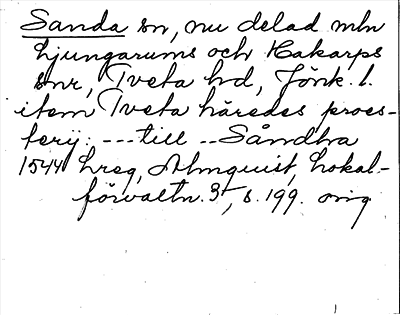 Sanda sn, nu delad mln
Ljungarums och Hakarps
snr, Tveta hd, Jönk. l.
item Tveta häredes proes-
terij: --- till -- Såndha
1544 hreg, Almquist, Lokal-
förvaltn. 3, s. 199. orig